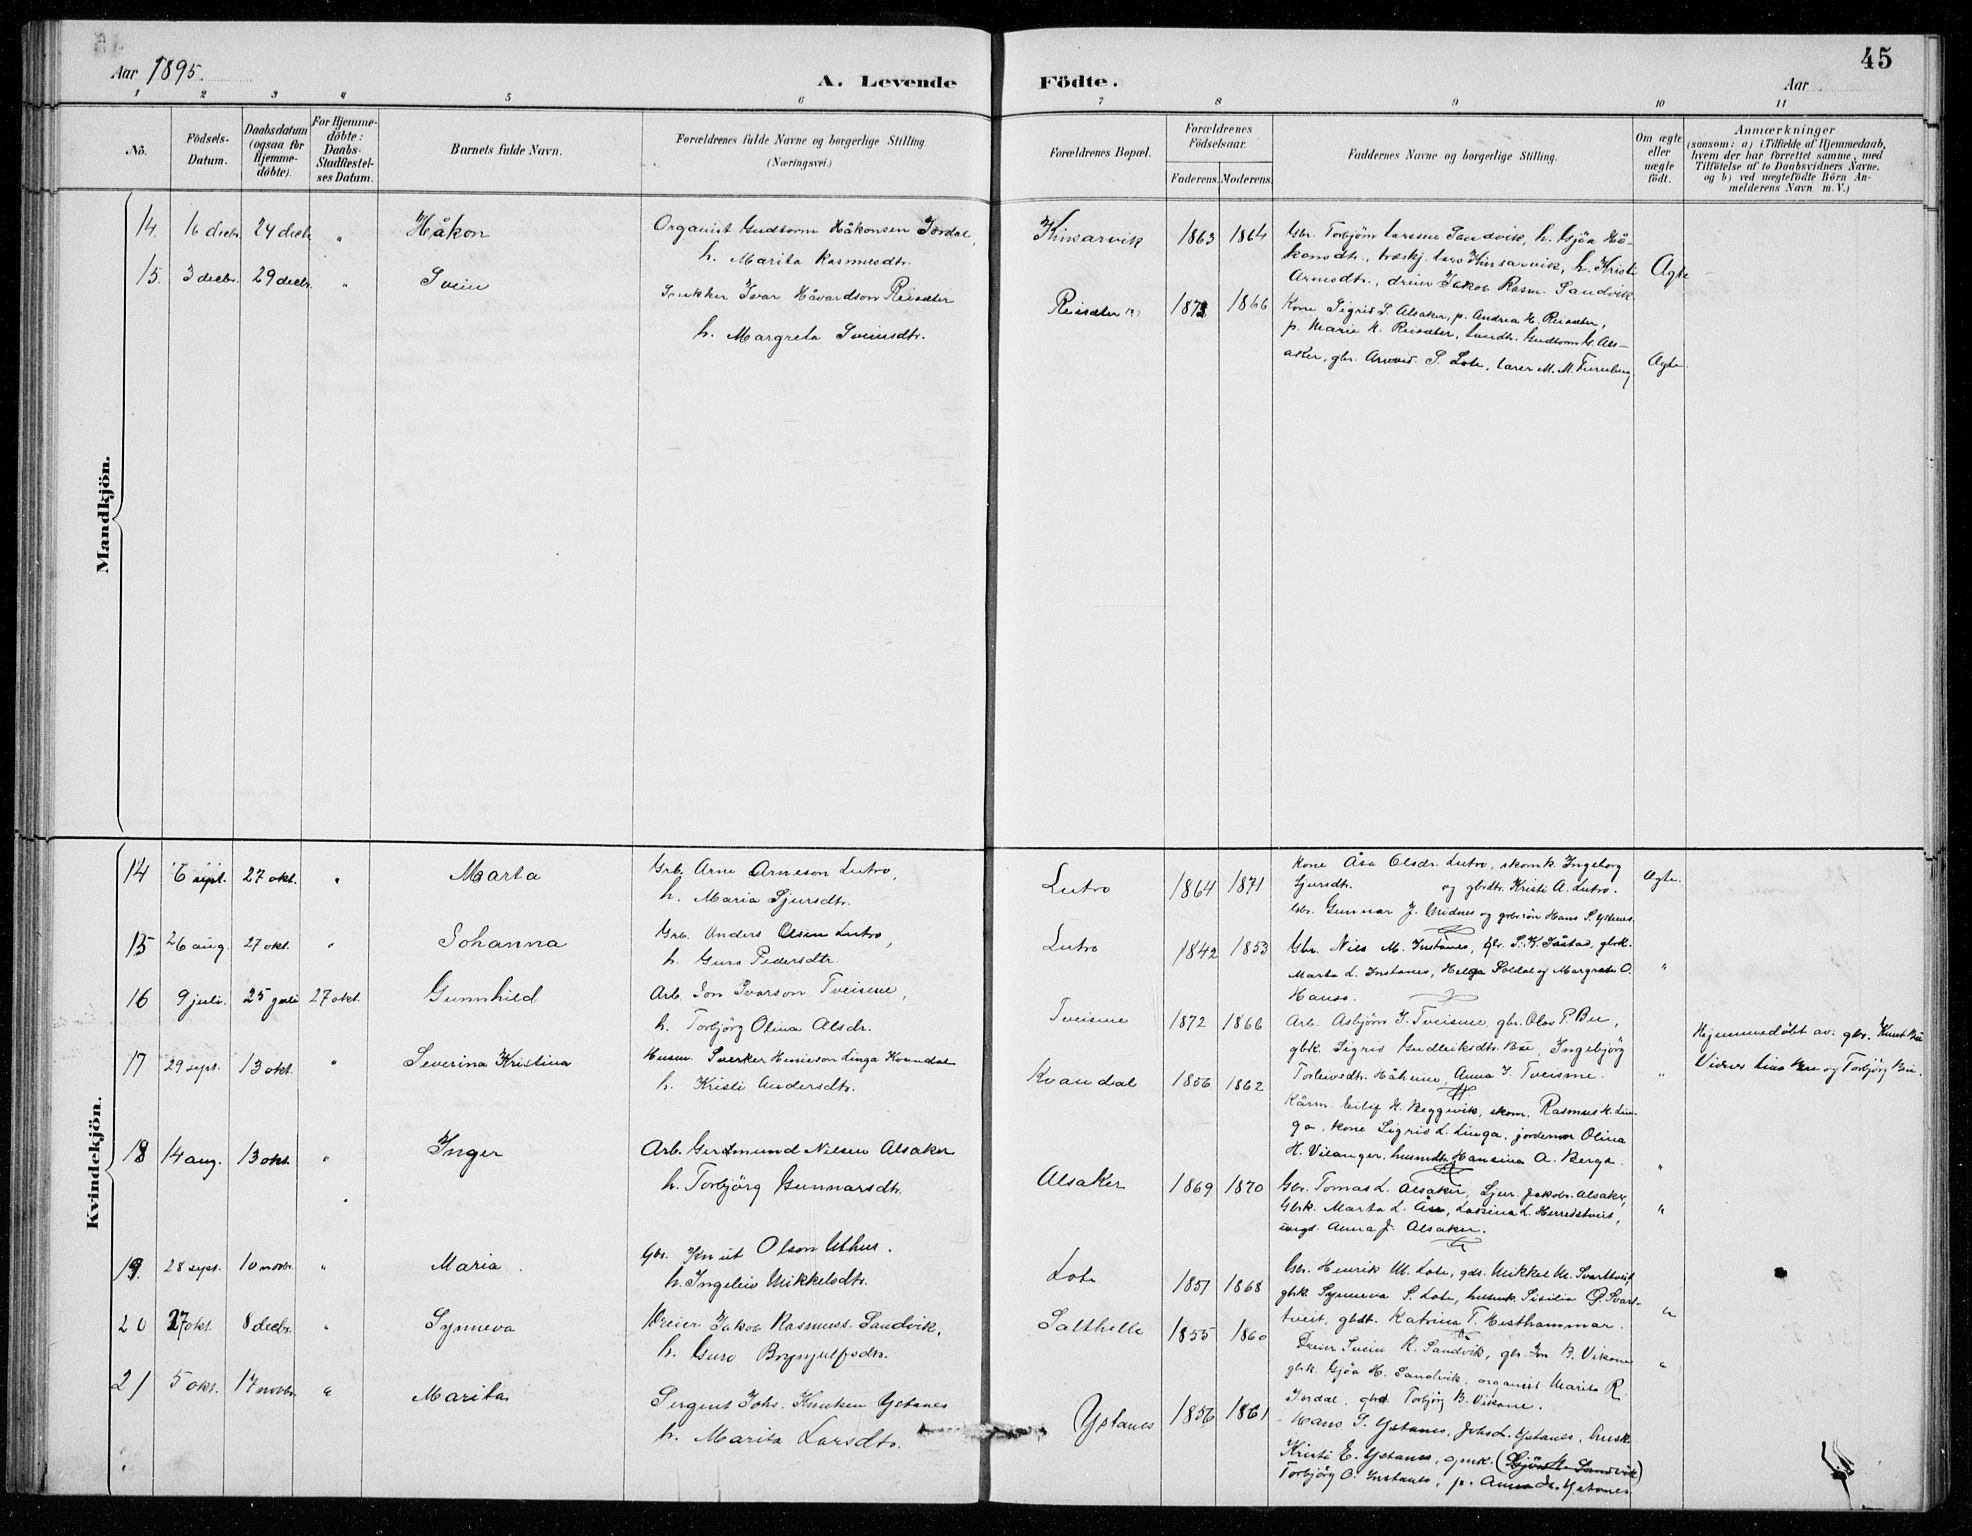 45
Aar 1895.
A. Levende Födte.
Aar
1 2 3 4 5 6 7 8 9 10 11
No.
Födsels-Datum.
Daabsdatum (ogsaa for Hjemmedöbte).
For Hjemmedöbte: Daabs-Stadfæstelses Datum.
Barnets fulde Navn.
Forældrenes fulde Navne og borgerlige Stilling. (Næringsvei.)
Forældrenes Bopæl.
Forældrenes Födselsaar.
Faderens. Moderens.
Faddernes Navne og borgerlige Stilling.
Om ægte eller uægte födt.
Anmærkninger
(saasom: a) i Tilfælde af Hjemmedaab,
hvem der har forrettet samme, med
Tilföielse af to Daabsvidners Navne,
og b) ved uægtefödte Börn Anmelderens Navn m. V.)
Mandkjön.
14. 16 decbr. 24 decb. " Håkon Organist Gudtorm Håkonsen Jordal, h. Marita Rasmusdtr. Kinsarvik 1863 1864
Gbr. Torbjörn Larssen Sandvik, h. Gjöa Hå-
konsdtr., træskj. Lars Kinsarvik, h. Kristi
Arnesdtr., dreier Jakob Rasm. Sandvik.
Ægte
15. 3 decbr. 29 decbr. " Svein Snekker Ivar Håvardson Reisæter h. Margreta Sveinsdtr. Reisæter 1872 1866
Kone Sigrid S. Alsaker, p. Andrea H. Reisæter,
p. Marie H. Reisæter, Gudtorm G. Als-
aker, gbr. S. Lote, lærer M. M.
Ægte.
Kvindekjön.
14 6 sept. 27 okt. " Marta Grb. Arne Arneson Lutro, h. Maria Sjursdtr. Lutro 1864 1871
Kone Åsa Olsdr. Lutro, skomk. Ingeborg
Sjursdtr. og gbrdtr. Kristi A. Lutro.
Gbr. Gunnar J. Midnes og gbrsön Hans S. Ystenes.
Ægte.
15 26 aug. 27 okt. " Johanna Grb. Anders Olsen Lutro, h. Guro Pedersdtr. Lutro 1842 1853
Gbr. Nils M. Instanes, gbr. S. K. Jåstad, gbrk.
Marta L. Instanes, Helga Soldal og Margreta O.
Hauso.
"
16 9 juli. 25 juli 27 okt. Gunnhild Arb. Jon Ivarson Tveisme, h. Torbjörg Olina Alsdr. Tveisme 1872 1866
Arb. Asbjörn J. Tveisme, gbr. Olav P. Bu,
gbk. Sigrid Gudleiksdtr. Bu, Ingebjörg
Torleivsdtr. Håheim, Anna J. Tveisme.
"
Hjemmedöbt av: gbr. Knut Bu
Vidner Lina Bu og Torbjörg Bu.
17 29 sept. 13 okt. " Severina Kristina Husm. Sverker Linga Kvandal h. Kristi Andersdtr. Kvandal 1856 1862
Eilif H. Beggevik, skom. Rasmus H. Lin-
ga, kone Sigrid L. Linga, jordemor Olina
H. Vilanger, husmdtr. Hansina A. Berge.
"
18 14 aug. 13 okt. " Inger Arb. Germund Nilsen Alsaker h. Torbjörg Gunnarsdtr. Alsaker 1869 1870
Gbr. Tomas L. Alsaker, Sjur Jakobs. Alsaker,
Gbrk. Marta L. Åse, Larsina L. Herredstveit,
ungd. Anna J. Alsaker.
"
19. 28 sept. 10 novbr. " Maria. Gbr. Knut Olson Uthus. h. Ingeleiv Mikkelsdtr. Lote 1851 1868
Gbr. Henrik M. Lote, gdr. Mikkel M. Svarttveit,
gbk. Synneva S. Lote, husmk. Sisilia O Svart-
tveit, gbdt. Katrina T. Hesthammar.
"
20 27 okt. 8 decbr. " Synneva Dreier Jakob Rasmuss. Sandvik, h. Guro Brynjulfsdtr. Salthelle 1855 1860
Dreier Svein R. Sandvik, gbr. Jon B. Vikane
gbk. Gjöa H. Sandvik, organist Marita R.
Jordal, gbd. Torbjörg B. Vikane.
"
21 5 okt. 17 novbr. " Marita Sergent Johs. Knutsen Ystanes h. Marita Larsdtr. Ystanes 1856 1861
Hans S. Ystanes, Johs L. Ystanes, husk.
Kristi E. Ystanes, gmk. (Gjöa H. Sandvik)
Torbjörg O. Instanes, p. Anna Ystanes